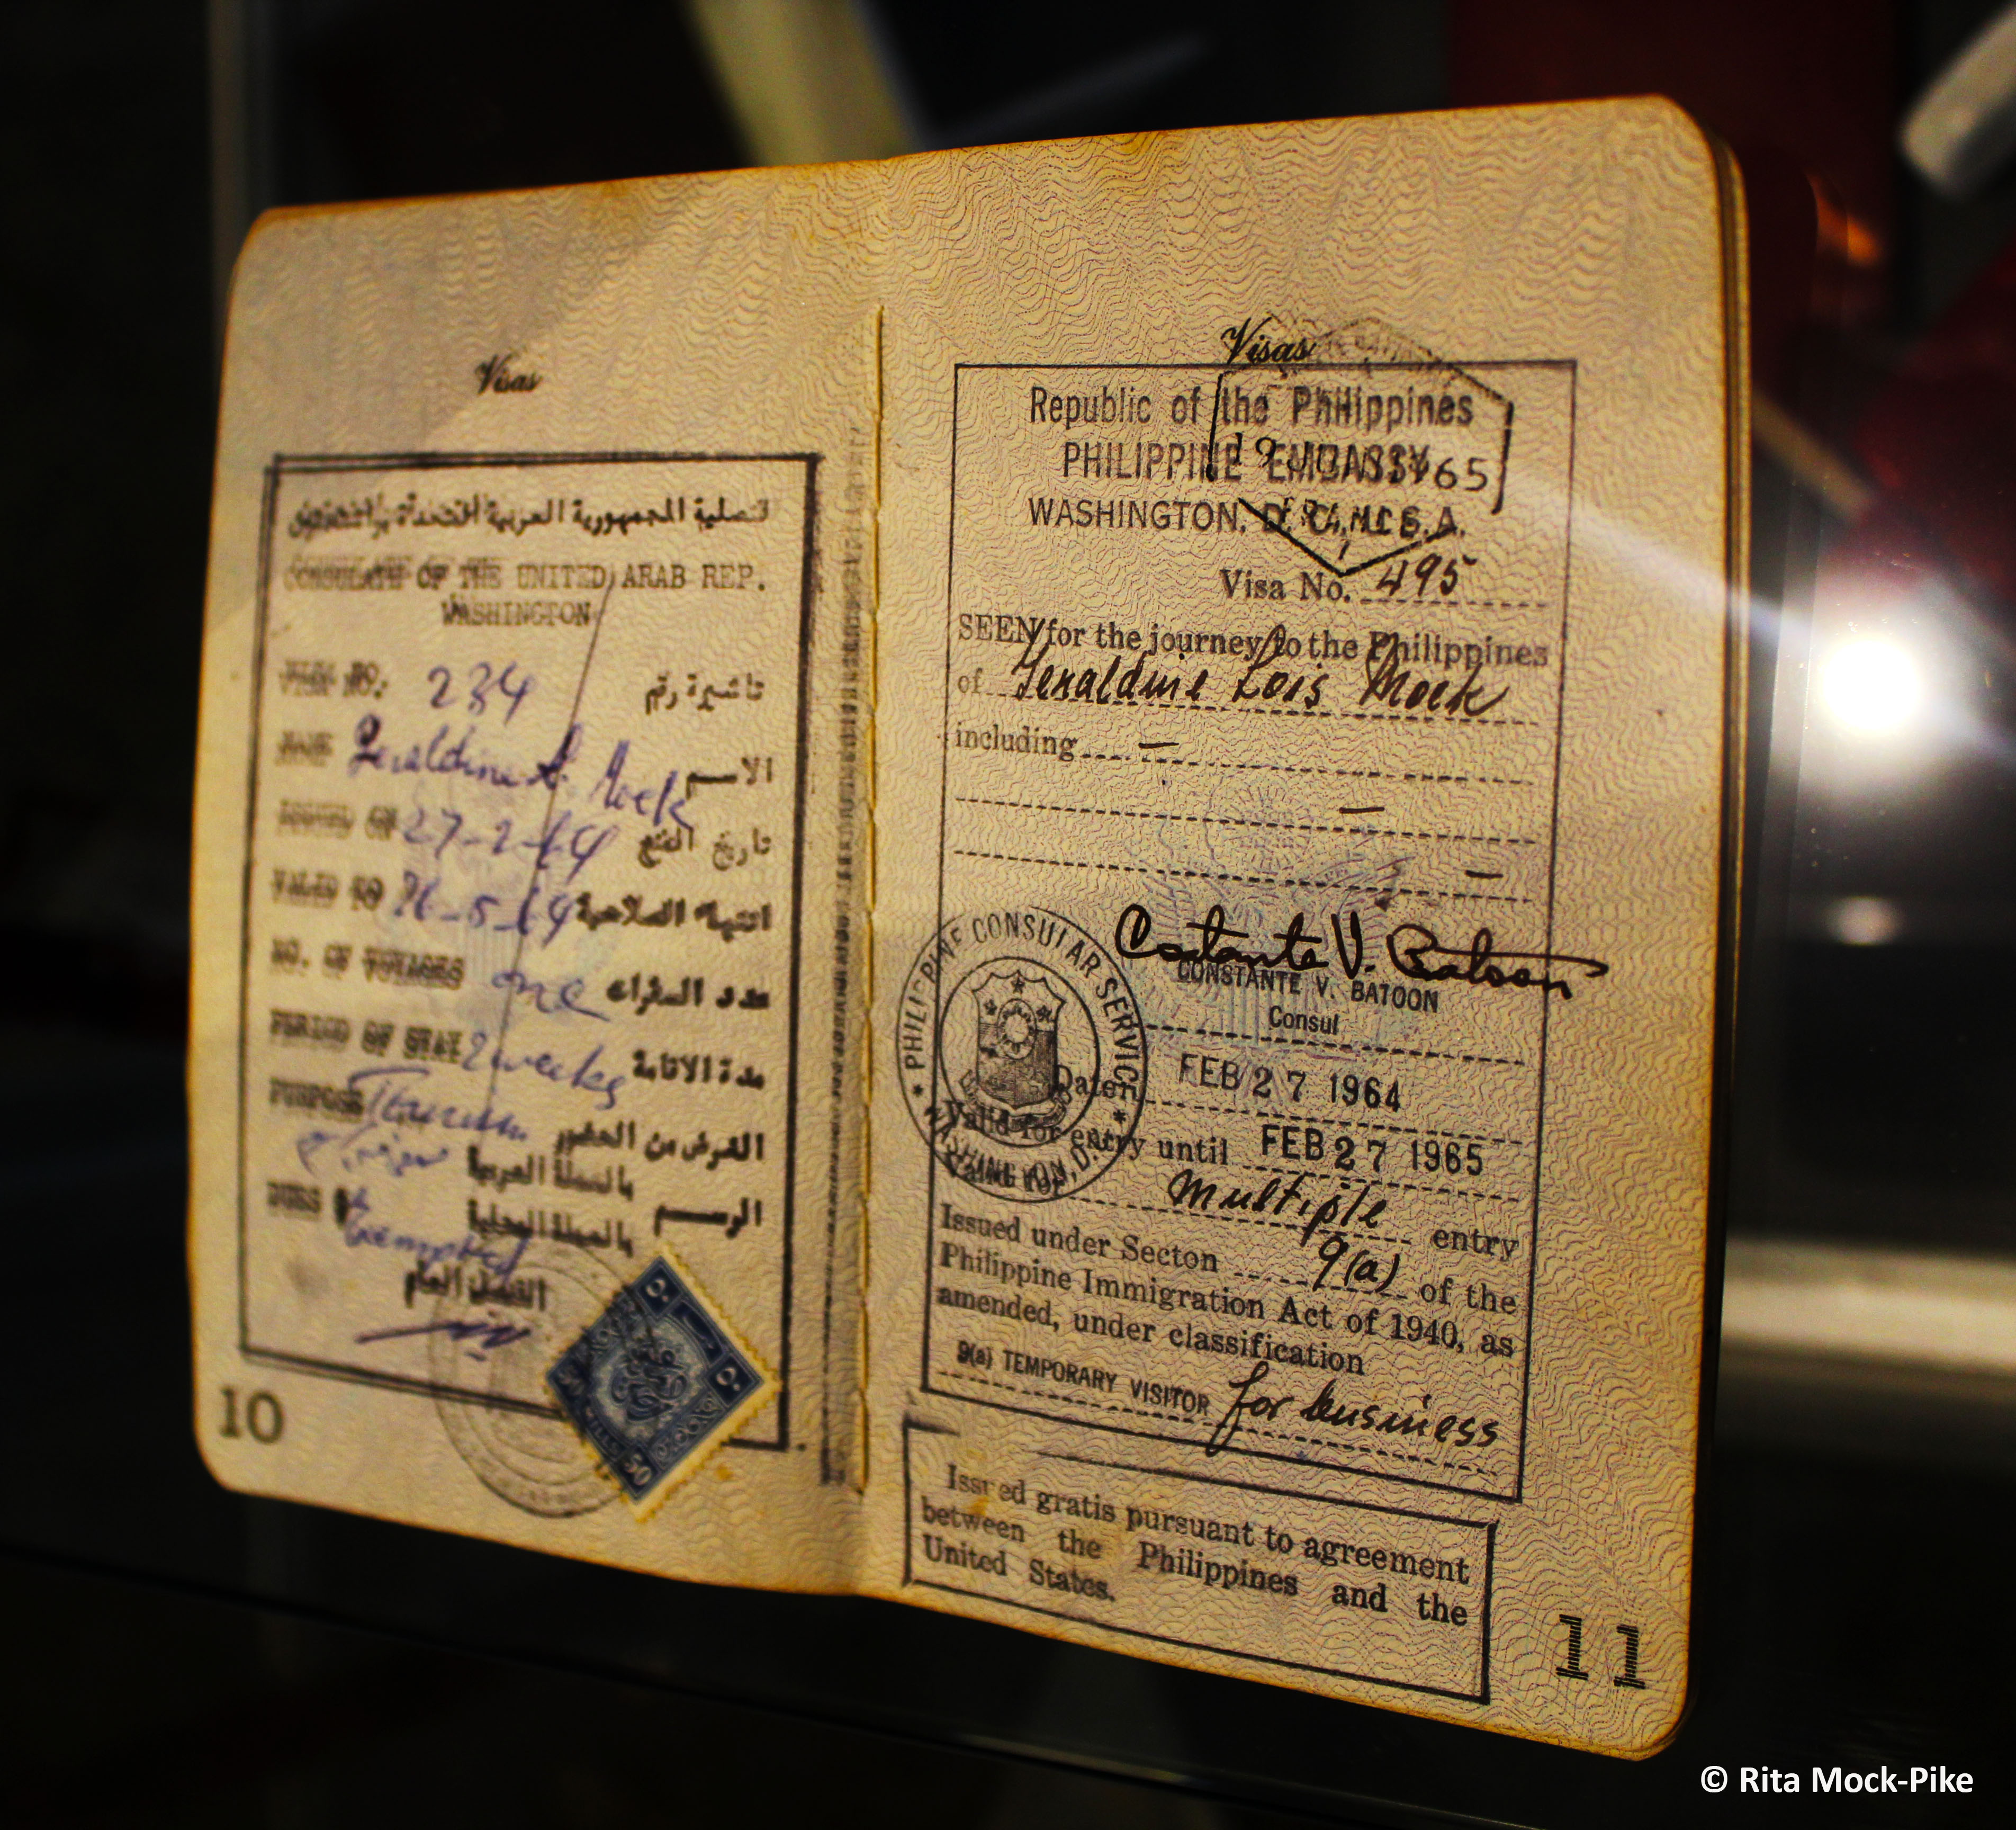 Visas
قنصلية الجمهورية العربية المتحدة بواشنطون
CONSULATE OF THE UNITED ARAB REP.
WASHINGTON
VISA NO. 234 تاشيرة رقم
NAME Geraldine L. Mock الاسم
ISSUED ON 27-2-64 تاريخ المنح
VALID TO 26-5-64 انتهاء الصلاحية
NO. OF VOYAGES one عدد السفرات
PERIOD OF STAY 2 weeks مدة الاقامة
PURPOSE Tourism الغرض من الحضور
بالعملة العربية
DUES الرسم
بالعملة المحلية
Exempted
القنصل العام
50
10
Visas
Republic of the Philippines
PHILIPPINE EMBASSY
WASHINGTON, D.C., U.S.A.
Visa No. 495
SEEN for the journey to the Philippines
of Geraldine Lois Mock
including — 
—
—
Costante V. Batoon
CONSTANTE V. BATOON
Consul
PHILIPPINE CONSULAR SERVICE
WASHINGTON, D.C.
Dated FEB 27 1964
Valid for entry until FEB 27 1965
Valid for multiple entry
Issued under Secton 9(a) of the
Philippine Immigration Act of 1940, as
amended, under classification
9(a) TEMPORARY VISITOR for business
Issued gratis pursuant to agreement
between the Philippines and the
United States.
11
© Rita Mock-Pike